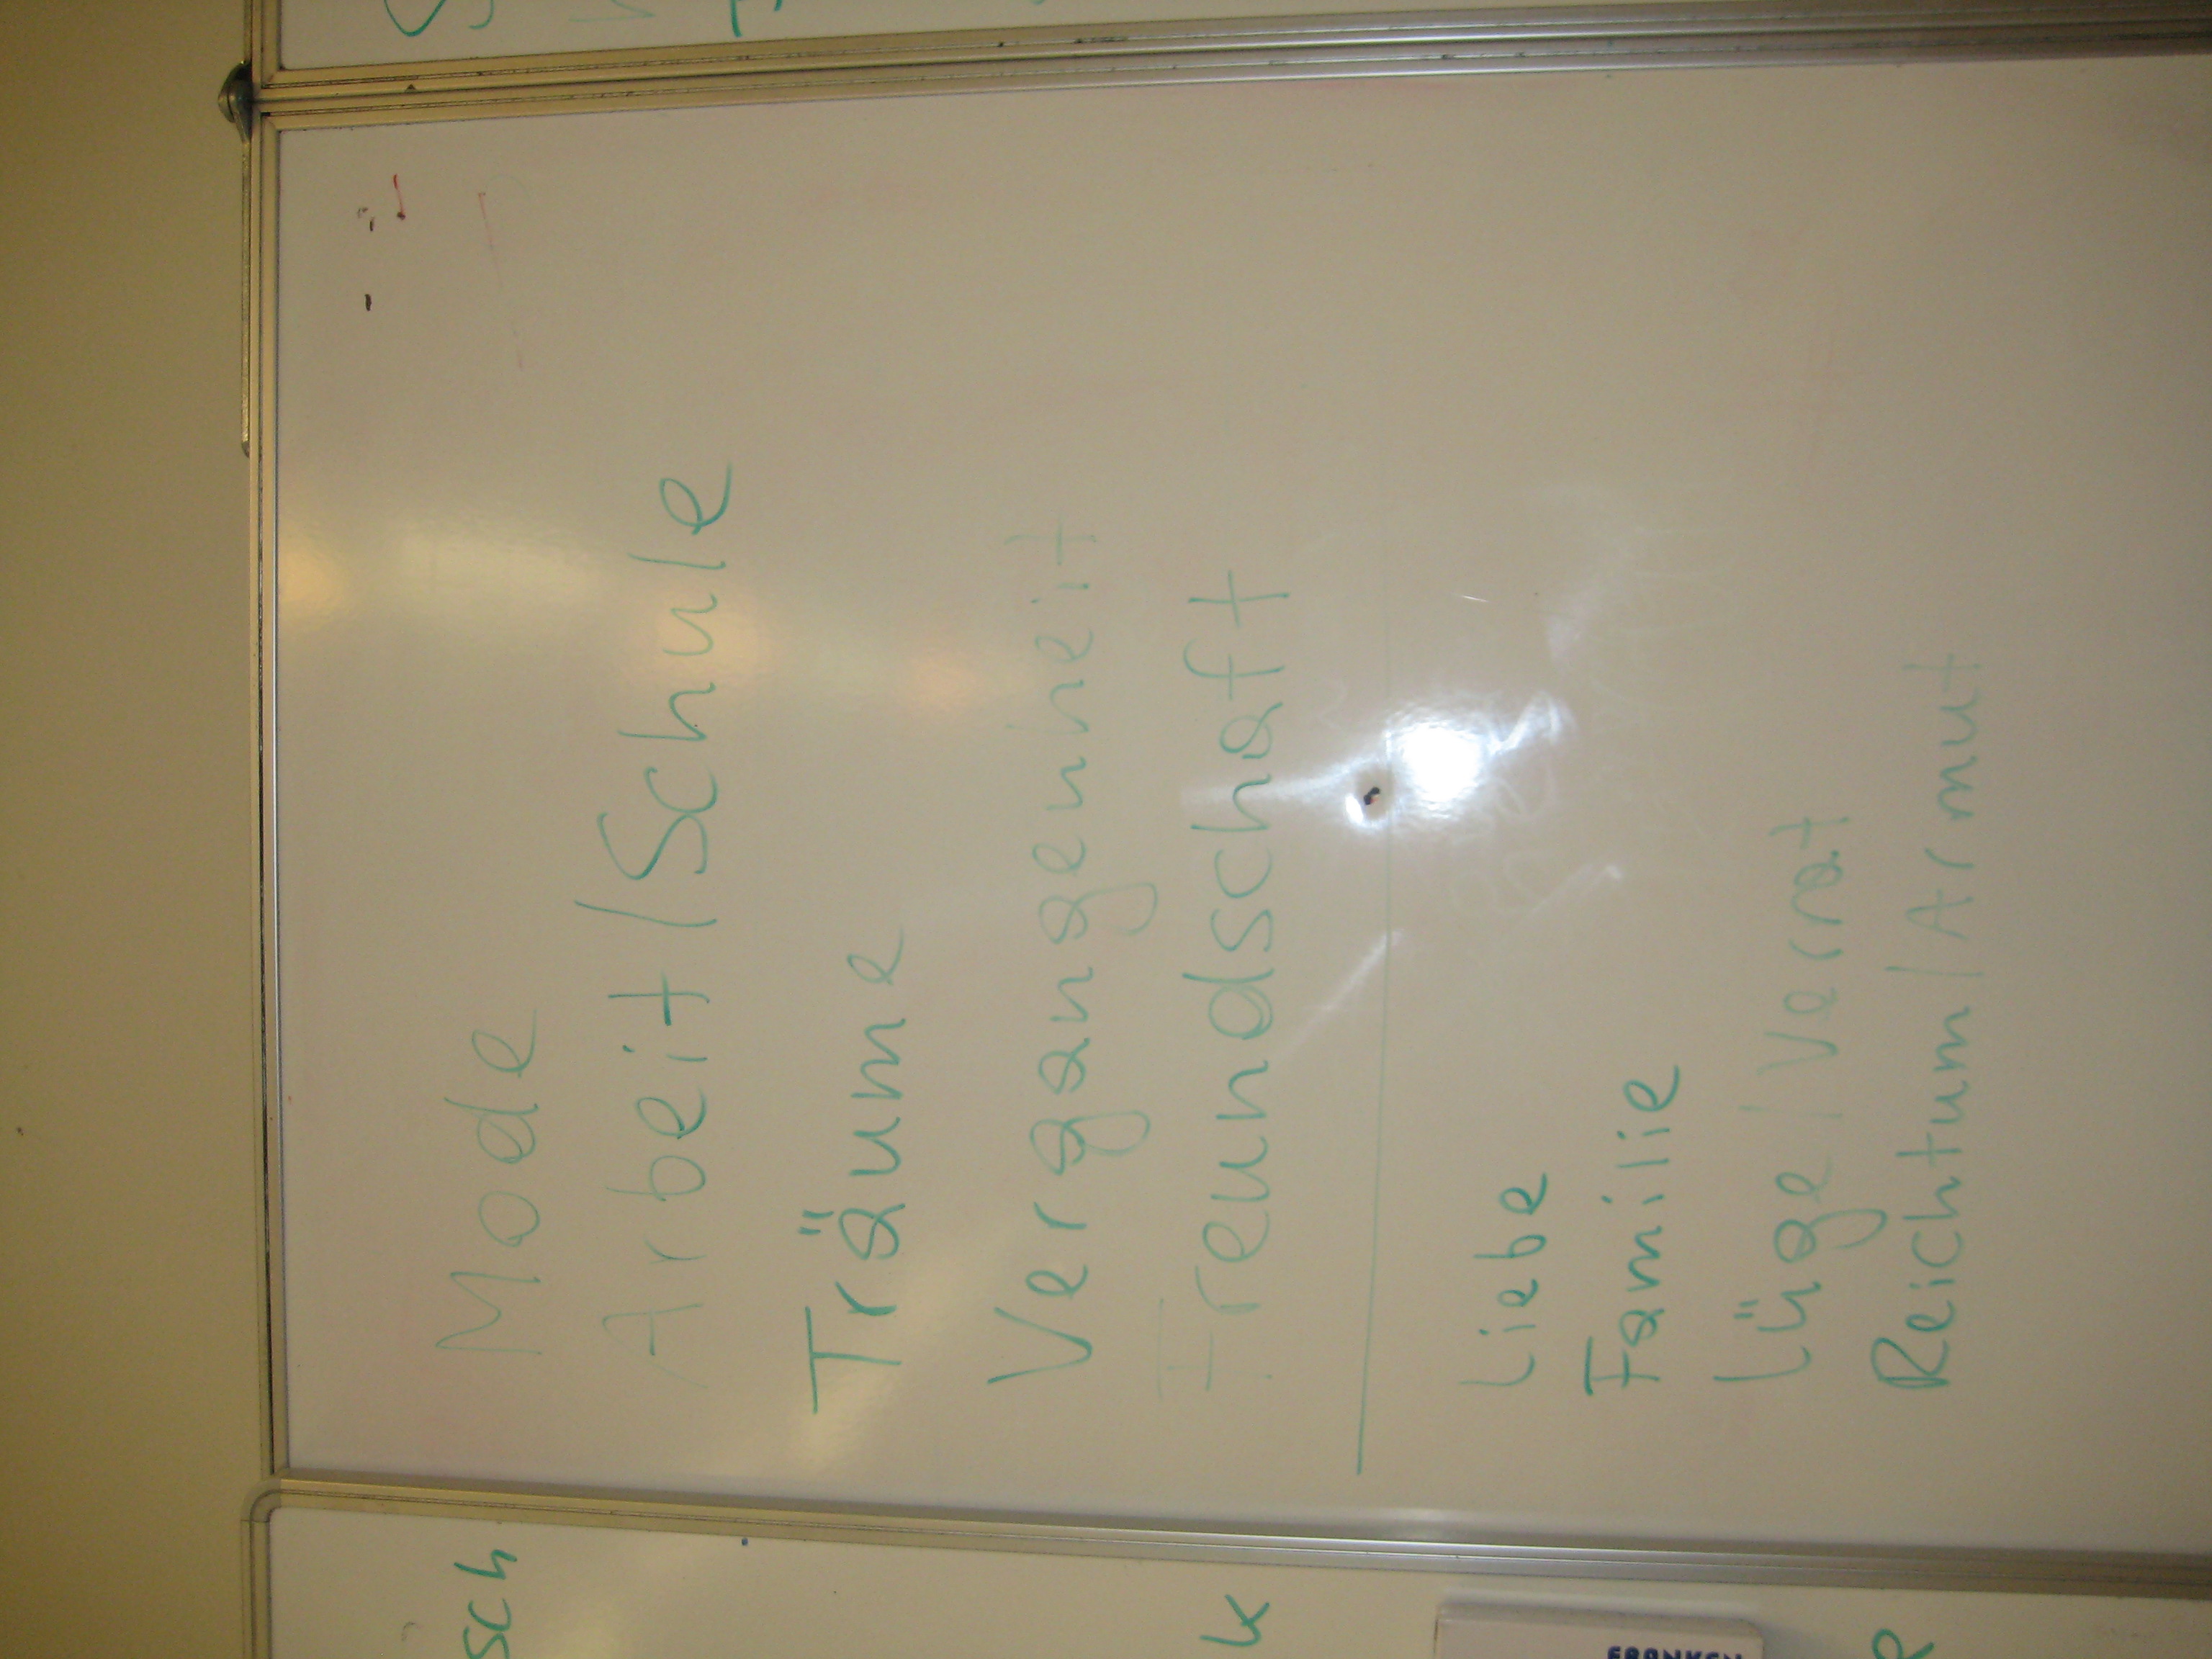 Mode
Arbeit/Schule
Träume
Vergangenheit
Freundschaft
Liebe
Familie
Lüge/Verrat
Reichtum/Armut
sch
k
FRANKEN